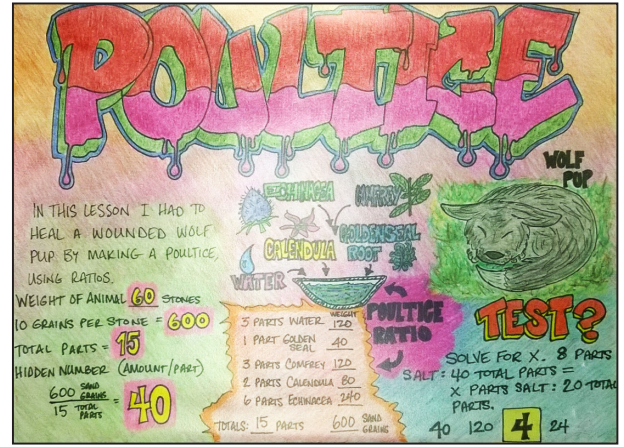 POULTICE
IN THIS LESSON I HAD TO
HEAL A WOUNDED WOLF
PUP BY MAKING A POULTICE,
USING RATIOS.
WEIGHT OF ANIMAL 60 STONES
10 GRAINS PER STONE = 600
TOTAL PARTS = 15
HIDDEN NUMBER (AMOUNT/PART)
600 SAND GRAINS
15 TOTAL PARTS
= 40
ECHINACEA
COMFREY
CALENDULA
GOLDENSEAL
ROOT
WATER
POULTICE
RATIO
WEIGHT
3 PARTS WATER 120
1 PART GOLDEN
SEAL 40
3 PARTS COMFREY 120
2 PARTS CALENDULA 80
6 PARTS ECHINACEA 240
TOTALS: 15 PARTS 600 SAND
GRAINS
WOLF
PUP
TEST?
SOLVE FOR X. 8 PARTS
SALT: 40 TOTAL PARTS =
X PARTS SALT: 20 TOTAL
PARTS.
40 120 4 24